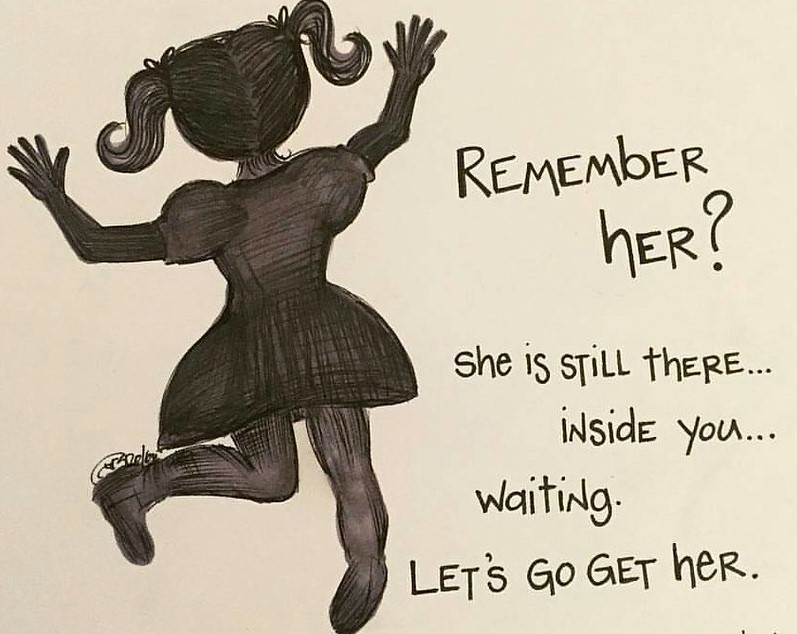 REMEMbER
hER?
She is STiLL thERE...
iNsidE you...
waitiNg.
LET'S GO GET hER.